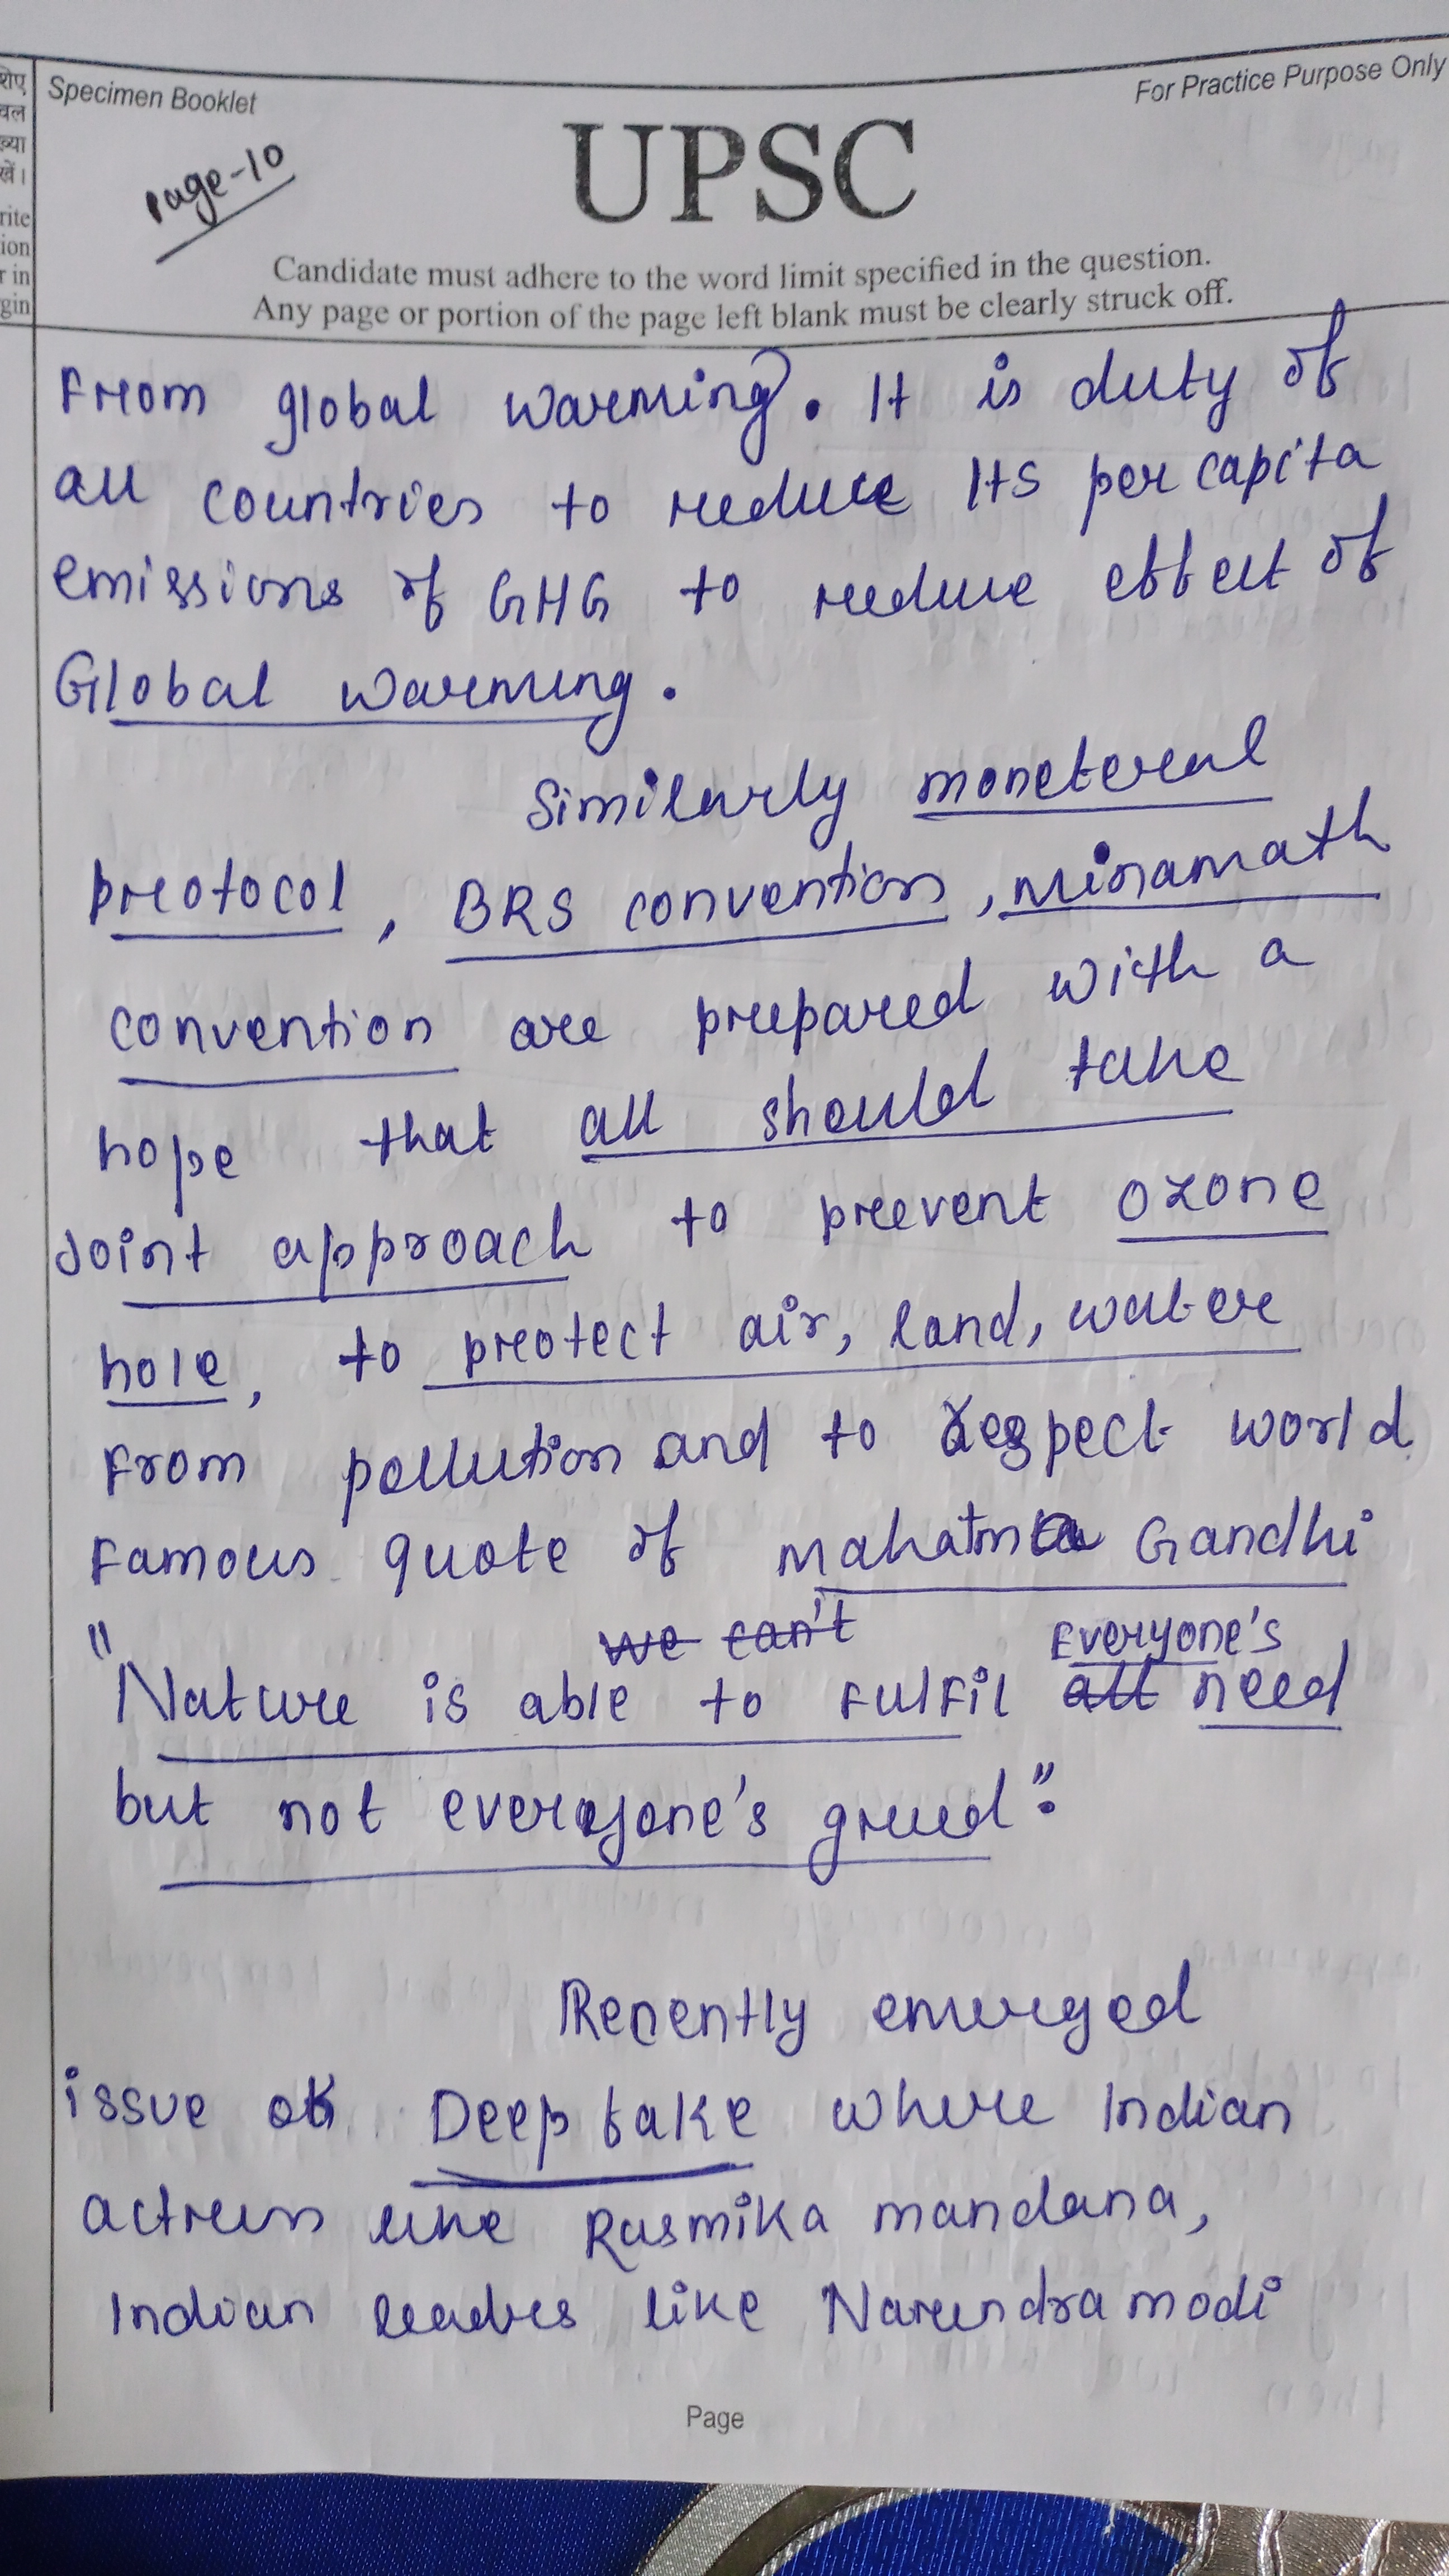 शेए
वल
ख्या
खें।
rite
ion
r in
gin
Specimen Booklet
For Practice Purpose Only
Page-10
UPSC
Candidate must adhere to the word limit specified in the question.
Any page or portion of the page left blank must be clearly struck off.
From global warming. It is duty of
all countries to reduce its per capita
emissions of GHG to reduce effect of
Global warming.
Similarly monetereal
protocol, BRS convention, Minamath
convention are prepared with a
hope that all should take
Joint approach to prevent ozone
hole, to protect air, land, water
From pollution and to respect world
Famous quote of Mahatma Gandhi
we can't Everyone's
"Nature is able to fulfil all need
but not everyone's greed".
Recently emerged
issue of Deep fake where Indian
actress like Rasmika mandana,
Indian leaders like Narendra modi
Page